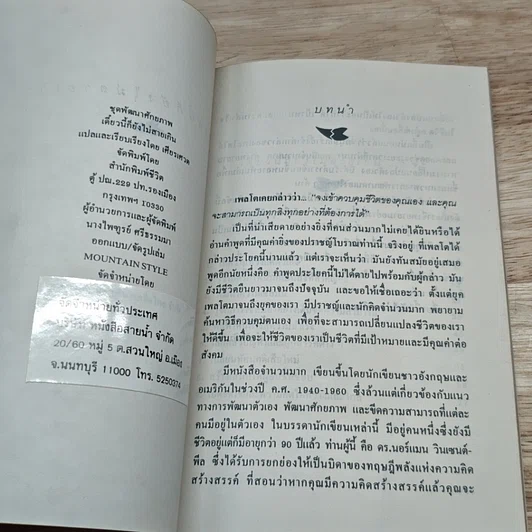 ชุดพัฒนาศักยภาพ
เดี๋ยวนี้ก็ยังไม่สายเกิน
แปลและเรียบเรียงโดย เศียรเศวต
จัดพิมพ์โดย
สำนักพิมพ์ชีวิต
ตู้ ปณ.229 ปท.รองเมือง
กรุงเทพฯ 10330
ผู้อำนวยการและผู้จัดพิมพ์
นางไพฑูรย์ ศรีธรรมมา
ออกแบบ/จัดรูปเล่ม
MOUNTAIN STYLE
จัดจำหน่ายโดย
จัดจำหน่ายทั่วประเทศ
บริษัท หนังสือสายน้ำ จำกัด
20/60 หมู่ 5 ต.สวนใหญ่ อ.เมือง
จ.นนทบุรี 11000 โทร. 5250374
บทนำ
เพลโตเคยกล่าวว่า... "จงเข้าควบคุมชีวิตของคุณเอง และคุณ
จะสามารถเป็นทุกสิ่งทุกอย่างที่ต้องการได้"
เป็นที่น่าเสียดายอย่างยิ่งที่คนส่วนมากไม่เคยได้ยินหรือได้
อ่านคำพูดที่มีคุณค่ายิ่งของปราชญ์โบราณท่านนี้ จริงอยู่ ที่เพลโตได้
กล่าวประโยคนี้มานานแล้ว แต่เราจะเห็นว่า มันยังทันสมัยอยู่เสมอ
พูดอีกนัยหนึ่งคือ คำพูดประโยคนี้ไม่ได้ตายไปพร้อมกับผู้กล่าว มัน
ยังมีชีวิตยืนยาวมาจนถึงปัจจุบัน และขอให้เชื่อเถอะว่า: ตั้งแต่ยุค
เพลโตมาจนถึงยุคของเรา มีปราชญ์และนักคิดจำนวนมาก พยายาม
ค้นหาวิธีควบคุมตนเอง เพื่อที่จะสามารถเปลี่ยนแปลงชีวิตของเรา
ให้ดีขึ้น เพื่อจะให้ชีวิตของเราเป็นชีวิตที่มีเป้าหมายและมีคุณค่าต่อ
สังคม
มีหนังสือจำนวนมาก เขียนขึ้นโดยนักเขียนชาวอังกฤษและ
อเมริกันในช่วงปี ค.ศ. 1940-1960 ซึ่งล้วนแต่เกี่ยวข้องกับแนว
ทางการพัฒนาตัวเอง พัฒนาศักยภาพ และขีดความสามารถที่แต่ละ
คนมีอยู่ในตัวเอง ในบรรดานักเขียนเหล่านี้ มีอยู่คนหนึ่งซึ่งยังมี
ชีวิตอยู่แต่ก็มีอายุกว่า 90 ปีแล้ว ท่านผู้นี้ คือ ดร.นอร์แมน วินเซนต์-
พีล ซึ่งได้รับการยกย่องให้เป็นบิดาของทฤษฎีพลังแห่งความคิด
สร้างสรรค์ ที่สอนว่าหากคุณมีความคิดสร้างสรรค์แล้วคุณจะ